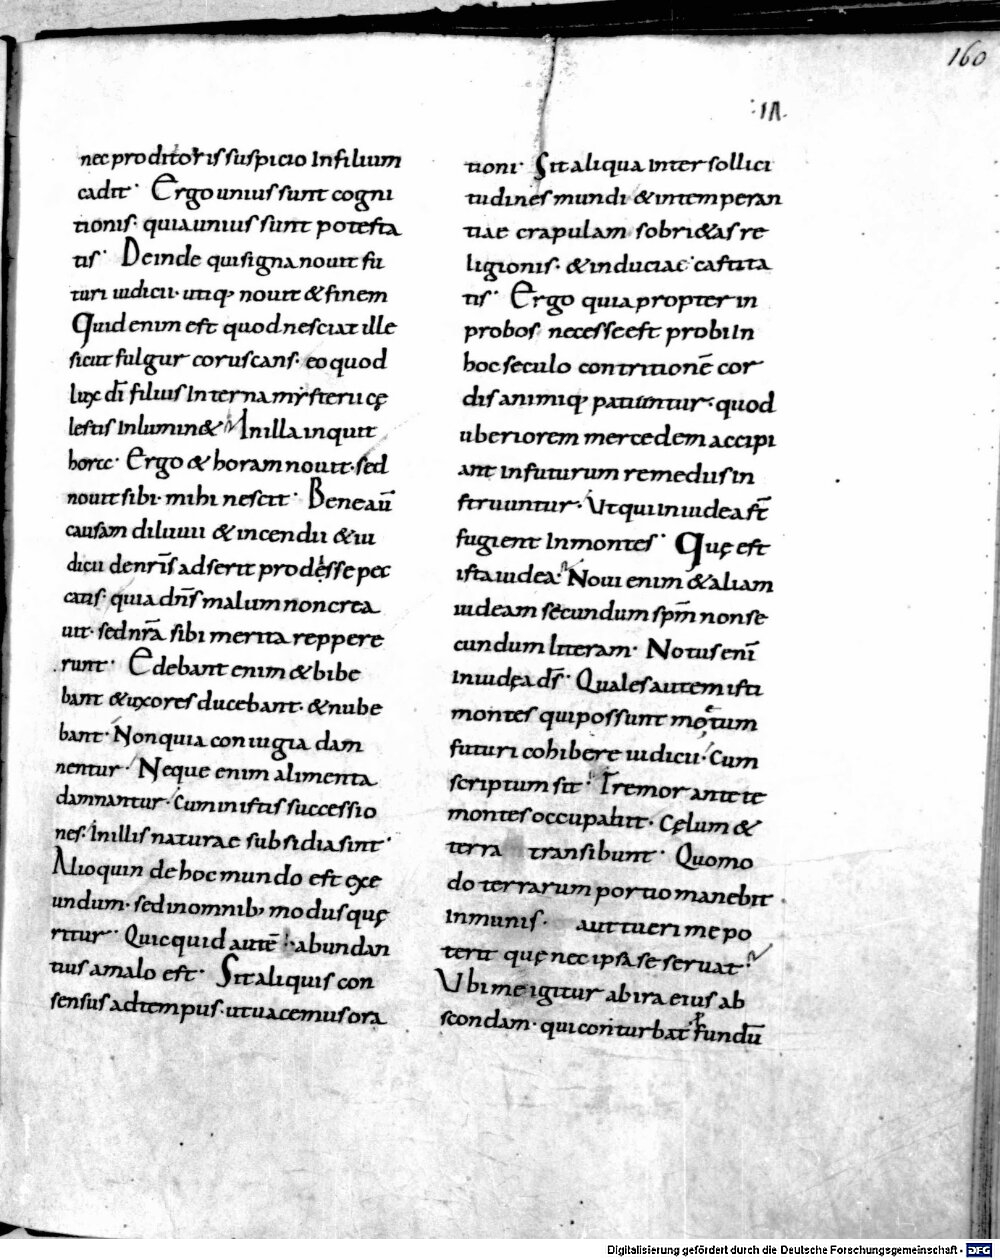 160
nec proditoris suspicio Infilium
cadit· Ergo unius sunt cogni
tionis· quia unius sunt potesta
tis· Deinde qui signa nouit fu
turi iudicii· utiq; nouit & finem
Quid enim est quod nesciat ille
sicut fulgur coruscans· eo quod
lux dī filius Interna mysterii cę
lestis Inlumin& Inilla inquit
hore· Ergo & horam nouit· sed
nouit sibi· mihi nescit· Bene aūt
causam diluuii & incendii & iu
dicii denrīs adserit prodesse pec
catis· quia dn̄s malum non crea
uit· sed nrā sibi merita reppere
runt· Edebant enim & bibe
bant & uxores ducebant· & nube
bant· Non quia coniugia dam
nentur· Neque enim alimenta
damnantur· Cum in istis successio
nes· Inillis naturae subsidia sint·
Alioquin de hoc mundo est exe
undum· sed in omnib; modus quę
ritur· Quicquid autē abundan
tius a malo est· Sit aliquis con
sensus ad tempus· ut uacemus ora
tioni· Sit aliqua inter sollici
tudines mundi & intemperan
tiae crapulam sobri&as re
ligionis· & induciae castita
tis· Ergo quia propter in
probos necesse est probi In
hoc seculo contritionē cor
dis animiq; patiuntur· quod
uberiorem mercedem accipi
ant in futurum remediis in
struuntur· Ut qui in iudea st̄
fugient Inmontes· Quę est
ista iudea· Noui enim & aliam
iudeam secundum sp̄m non se
cundum litteram· Notus enī
Iniudęa ds̄· Quales autem isti
montes qui possunt motum
futuri cohibere iudicii· Cum
scriptum sit· Tremor ante te
montes occupabit· Cęlum &
terra transibunt· Quomo
do terrarum portio manebit
Inmunis· aut tueri me po
terit quę nec ipsa se seruat·
Ubi me igitur ab ira eius ab
scondam· qui conturbat fundū